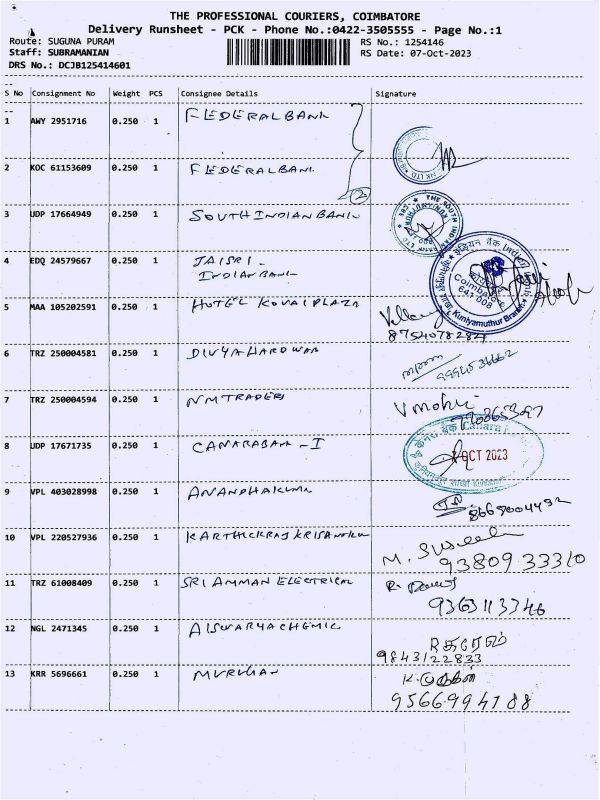 THE PROFESSIONAL COURIERS, COIMBATORE
Delivery Runsheet - PCK - Phone No.:0422-3505555 - Page No.:1
Route: SUGUNA PURAM RS No.: 1254146
Staff: SUBRAMANIAN RS Date: 07-Oct-2023
DRS No.: DCJB125414601
S No Consignment No Weight PCS Consignee Details Signature
1 AWY 2951716 0.250 1 FEDERALBANK
2 KOC 61153609 0.250 1 FEDERALBANK
2
3 UDP 17664949 0.250 1 SOUTHINDIANBANK
THE SOUTH
4 EDQ 24579667 0.250 1 JAISRI.
INDIANBANK
इंडियन बैंक
Coimbatore
641 008
Kuniyamuthur Branch
5 MAA 105202591 0.250 1 HOTEL KOVAIPLAZA
8754078284
6 TRZ 250004581 0.250 1 DIVYAHARDWAR
7 TRZ 250004594 0.250 1 NMTRADERS
V mohi
8 UDP 17671735 0.250 1 CANARABAN - I
केनरा बैंक Canara
OCT 2023
9 VPL 403028998 0.250 1 ANANDHAKUMA
8669004492
10 VPL 220527936 0.250 1 KARTHICKRAJKRISANTHU
M. Suseela
9380933310
11 TRZ 61008409 0.250 1 SRIAMMAN ELECTRICAL
9363113346
12 NGL 2471345 0.250 1 AISWARYACHEMIC
9843122833
13 KRR 5696661 0.250 1 MURUGAN
K. முருகன்
9566994188